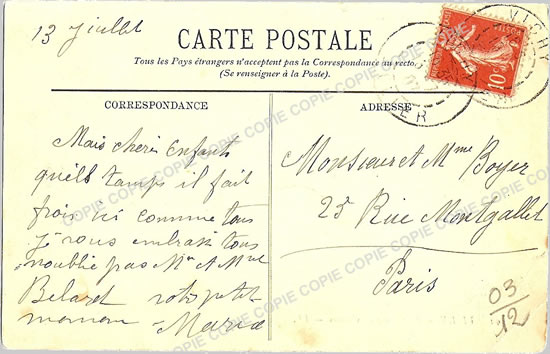 13 juillet
CARTE POSTALE
Tous les Pays étrangers n'acceptent pas la Correspondance au recto.
(Se renseigner à la Poste).
VICHY
10
ER
CORRESPONDANCE
ADRESSE
Mais cheris Enfants
quells tamps il fait
frois ici comme tous
je vous embrasse tous
noublié pas Mr et Mme
Belard votr petit
maman Maria
Monsieur et Mme Boyer
25 Rue Montgallet
Paris
03/12
COPIE COPIE COPIE COPIE COPIE COPIE